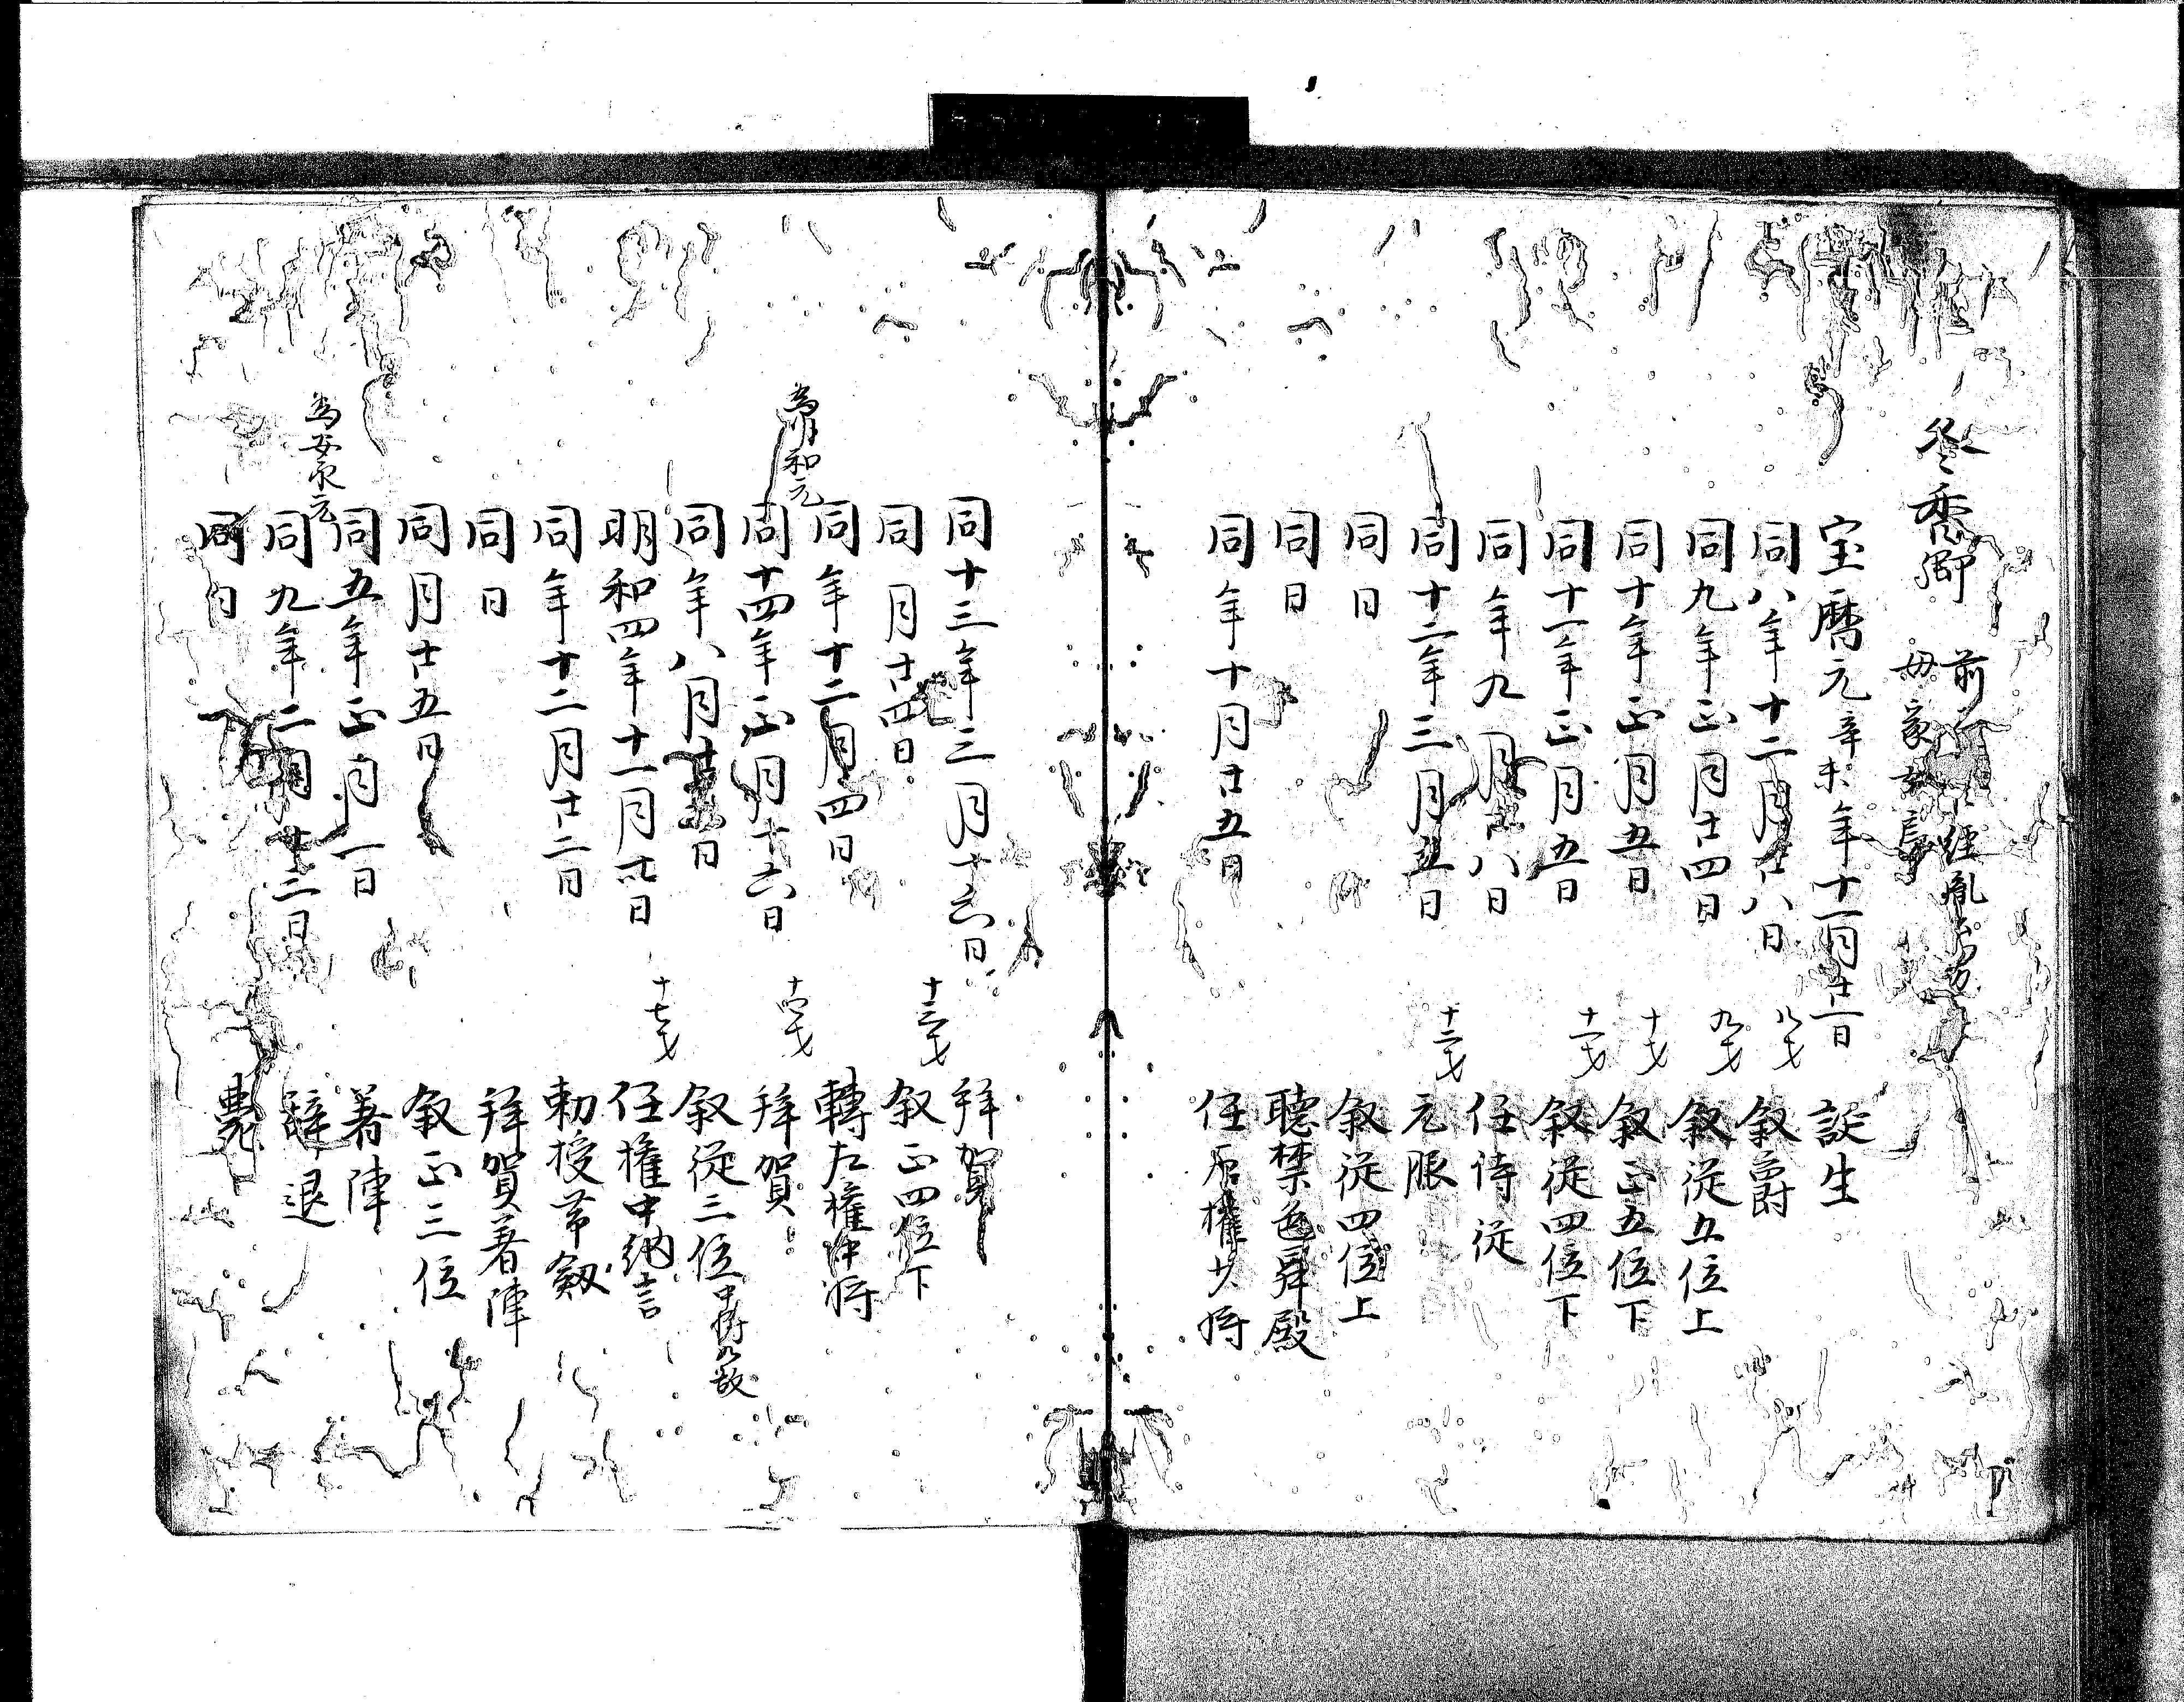 冬香卿 前
母家女房
宝暦元辛未年十一月廿一日 誕生
同八年十二月廿八日 八才 叙爵
同九年正月廿四日 九才 叙従五位上
同十年正月五日 十才 叙正五位下
同十一年正月五日 十一才 叙従四位下
同年九月廿八日 任侍従
同十二年三月五日 十二才 元服
同日 叙従四位上
同日 聴禁色昇殿
同年十月廿五日 任右権少将
同十三年三月十六日 十三才 拜賀
同月廿四日 叙正四位下
同年十二月四日 轉左権中将
為明和元
同十四年正月十六日 十四才 拜賀
同年八月日 叙従三位中将如故
明和四年十一月卅日 十七才 任権中納言
同年十二月廿二日 勅授帯劔
同日 拜賀著陣
同月廿五日 叙正三位
同五年正月一日 著陣
為安永元
同九年二月廿二日 辞退
同日 薨